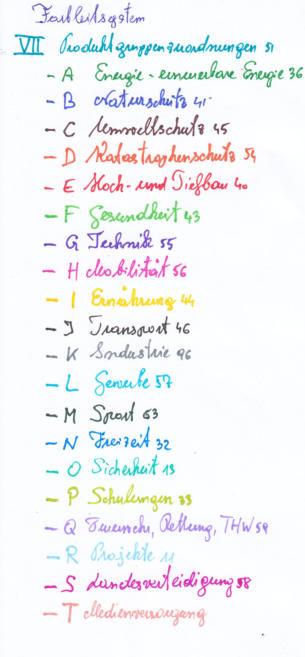 Farbleitsystem
VII Produktgruppenzuordnungen 51
- A Energie - erneuerbare Energie 36
- B Naturschutz 41
- C Umweltschutz 45
- D Katastrophenschutz 54
- E Hoch- und Tiefbau 40
- F Gesundheit 43
- G Technik 55
- H Mobilität 56
- I Ernährung 44
- J Transport 46
- K Industrie 96
- L Gewerke 57
- M Sport 63
- N Freizeit 32
- O Sicherheit 13
- P Schulungen 33
- Q Feuerwehr, Rettung, THW 59
- R Projekte 11
- S Landesverteidigung 58
- T Medienversorgung